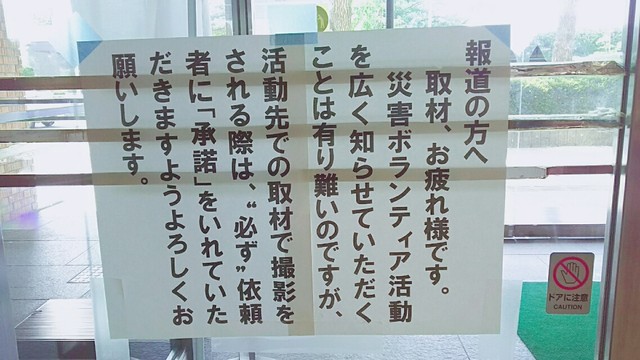 報道の方へ
取材、お疲れ様です。
災害ボランティア活動
を広く知らせていただく
ことは有り難いのですが、
活動先での取材で撮影を
される際は、“必ず”依頼
者に「承諾」をいれていた
だきますようよろしくお
願いします。
ドアに注意
CAUTION